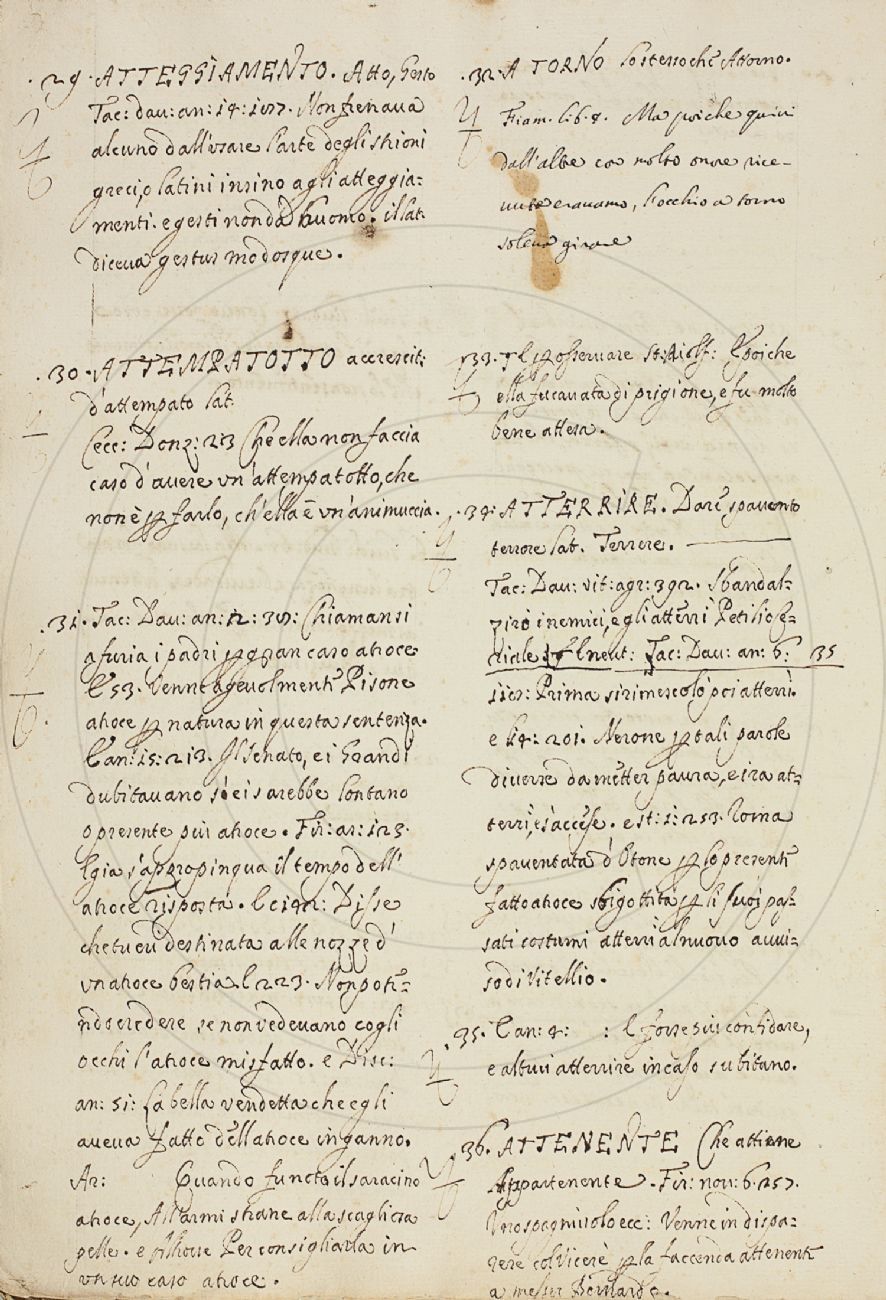 .29. ATTEGGIAMENTO. Atto, Gesto
Tac: dau: an: 14: 187. Non frenaua
alcuno dall'usare l'arte degli strioni
greci, o latini insino agli atteggia:
menti. e gesti non da huomo. il lat:
diceua gestus modosque.
.30. ATTEMPATOTTO accrescit:
d'attempato lat.
Cecc: Donz: 2:3 Che ella non faccia
caso d'auere un'attempatotto, che
non è per farlo, ch'ella è un'animuccia.
.31. Tac: Dau: an: 12: Chiamansi
a furia i padri per gran caso atroce
E 53. Venne ageuolmente Pisone
atroce per natura in questa sentenza.
E an: 15: 213. Il Senato, e i Grandi
dubitauano s'ei sarebbe lontano
o presente più atroce. Fir: as: 123.
E già s'appropinqua il tempo dell'
atroce risposta. E Disse
che tu eri destinata alle nozze d'
un atroce bestia. E 223. Non poti=
no credere, se non vedeuano cogli
occhi l'atroce misfatto. e Disc:
an: 51: La bella vendetta che egli
aueua fatto dell'atroce inganno.
Ar: Quando fu noto il saracino
atroce, All'armi strane alla scagliosa
pelle. e Altroue Per consigliarla in
un suo caso atroce.
.32. A TORNO lo stesso che Attorno.
Fiam. lib. 4. Ma poiche quiui
dall'altre con molto onore rice-
uute erauamo, l'occhio a torno
soleua girare
.33. E per osseruare E poiche
ella fu cauata di prigione, e fu molto
bene attesa.
.34. ATTERRIRE. Dare spauento
terrore lat. Terrere.
Tac: Dau: vit: agr: 392. Sbandal-
ziro i nemici, e gli atterrì Petilio Ce-
riale E neut: Tac: Dau: an: 6: 35
Prima si rimescolò poi atterrì.
e 14: 201. Nerone per tali parole
diuerse da metter paura, e ira at-
terrì, e s'accese. e st: 1: 253. Roma
spauentata d'Otone per lo presente
fatto atroce sbigottita per li suoi pas-
sati costumi atterrì al nuouo auui-
so di Vitellio.
.35. E an: 4: : E forse sui confidare,
e altrui atterrire in caso subitano.
.36. ATTENENTE Che attiene
Appartenente. Fir: nou: 6. 257.
Uno spagniuolo ecc: Venne in dispa-
rere col Vicere per la faccenda attenente
a messer Bernardo.